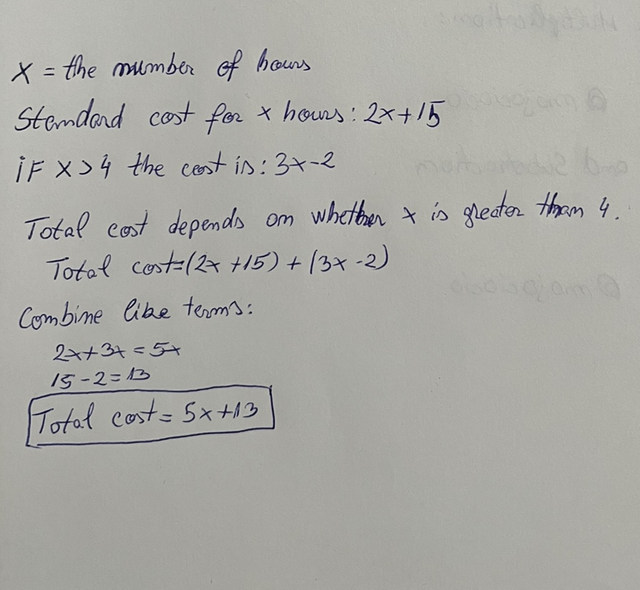 X = the number of hours
Standard cost for x hours: 2x+15
if X>4 the cost is: 3x-2
Total cost depends on whether x is greater than 4.
Total cost=(2x+15)+(3x-2)
Combine like terms:
2x+3x=5x
15-2=13
Total cost=5x+13